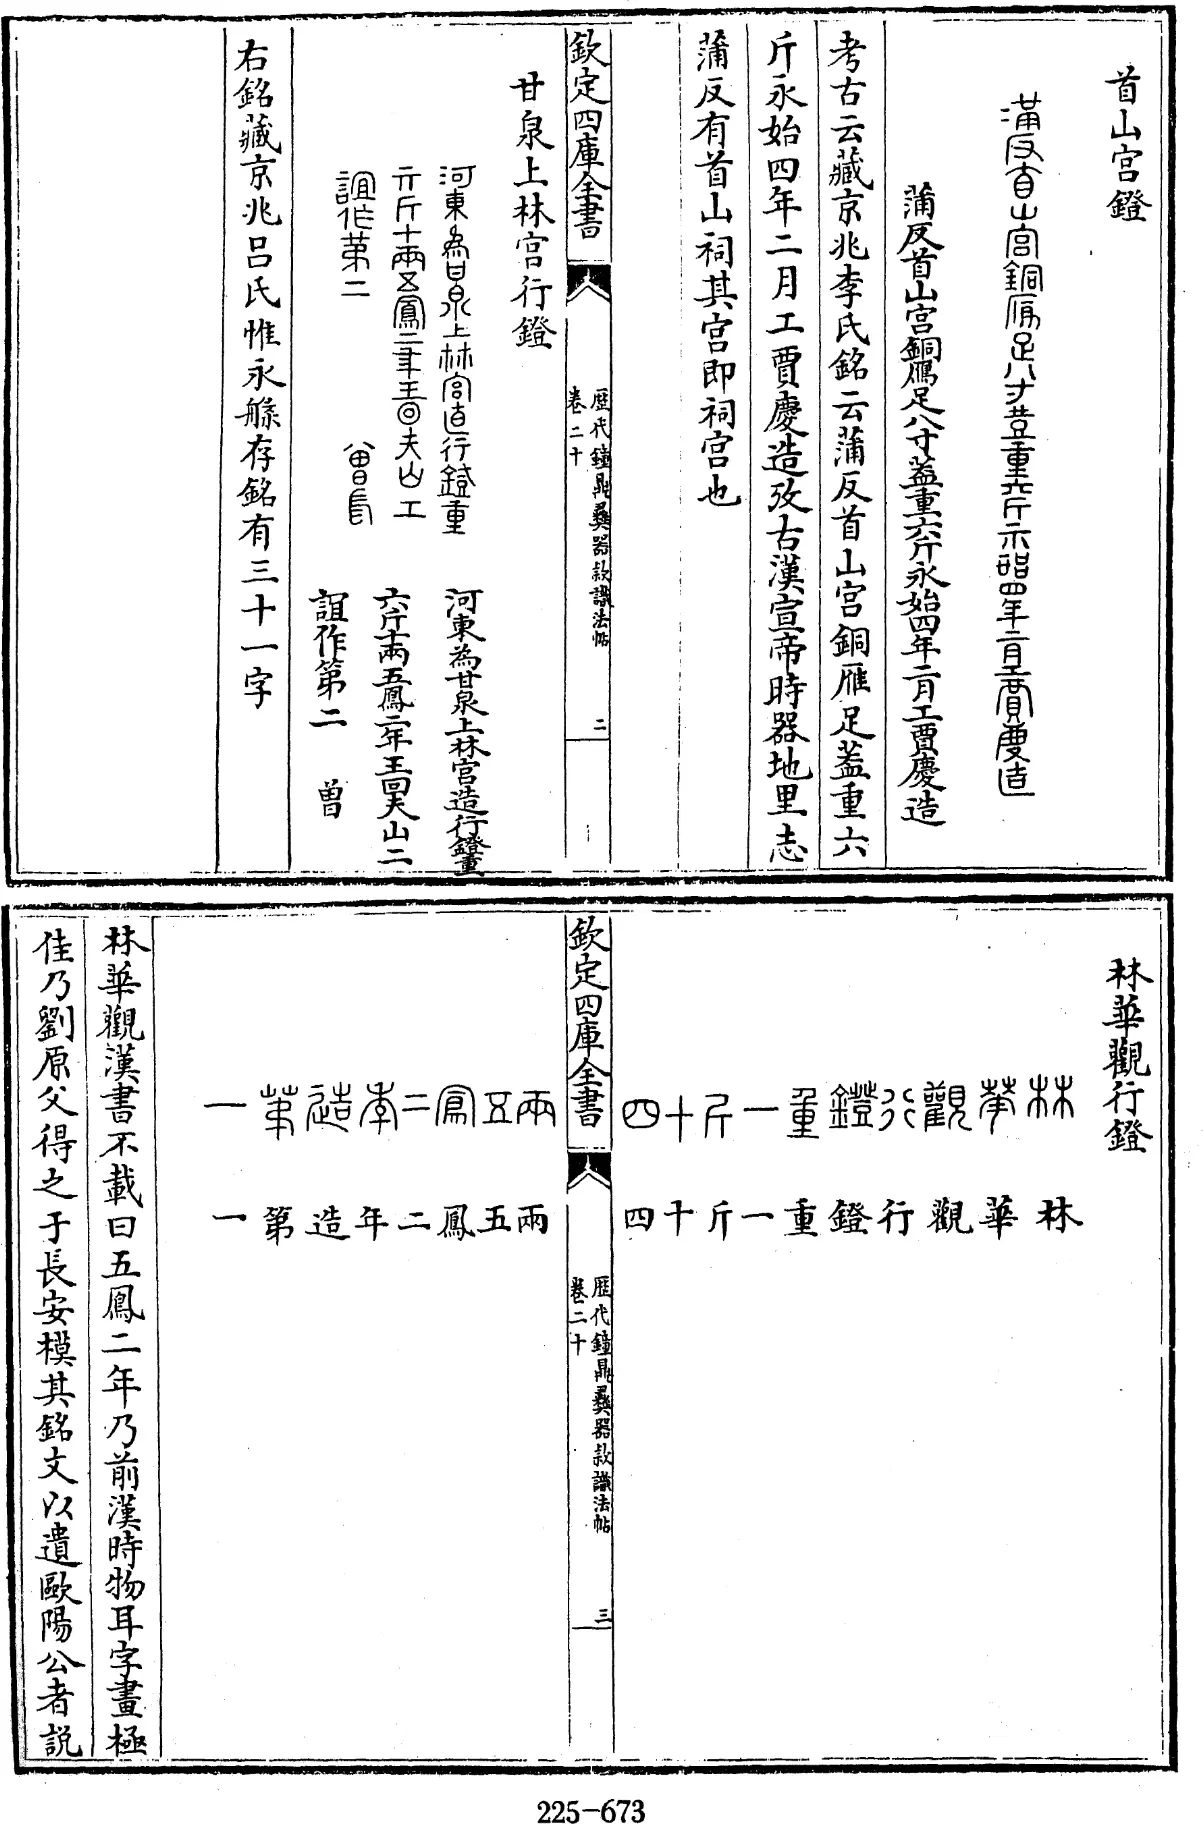 首山宮鐙
蒲反首山宮銅鴈足八寸葢重六斤永始四年二月工賈慶造
考古云藏京兆李氏銘云蒲反首山宮銅雁足葢重六
斤永始四年二月工賈慶造攷古漢宣帝時器地里志
蒲反有首山祠其宮即祠宮也
欽定四庫全書
歷代鐘鼎彝器款識法帖
卷二十
二
甘泉上林宮行鐙
河東為甘泉上林宮造行鐙重
六斤十兩五鳳二年
工
誼作第二
河東為甘泉上林宮造行鐙重
六斤兩五鳳二年
山二
誼作第二 曾
右銘藏京兆呂氏惟永槃存銘有三十一字
林華觀行鐙
林華觀行鐙重一斤十四
林華觀行鐙重一斤十四
欽定四庫全書
歷代鐘鼎彝器款識法帖
卷二十
三
兩五鳳二年造第一
兩五鳳二年造第一
林華觀漢書不載曰五鳳二年乃前漢時物耳字畫極
佳乃劉原父得之于長安模其銘文以遺歐陽公者説
225-673